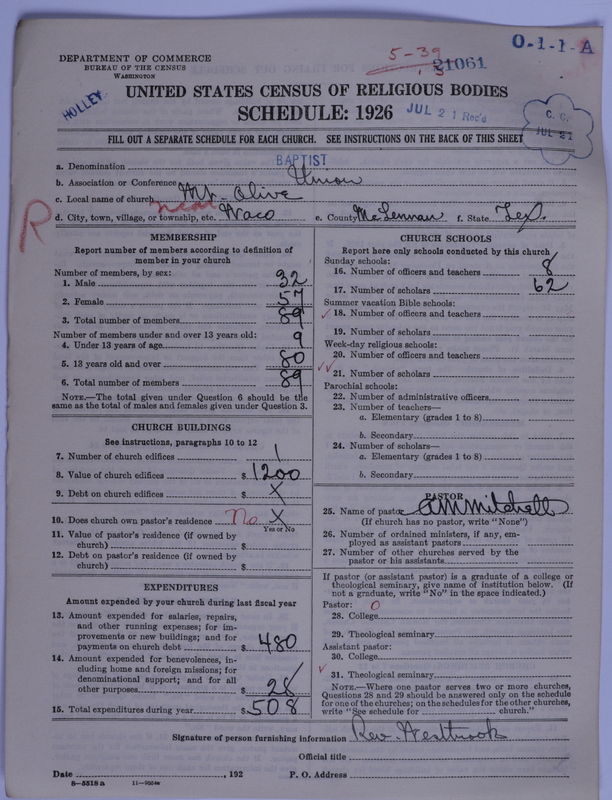 5-39
21061
O-1-1-A
DEPARTMENT OF COMMERCE
BUREAU OF THE CENSUS
WASHINGTON
HOLLEY
UNITED STATES CENSUS OF RELIGIOUS BODIES
SCHEDULE: 1926
JUL 21 Rec'd
C. C.
JUL 21
FILL OUT A SEPARATE SCHEDULE FOR EACH CHURCH. SEE INSTRUCTIONS ON THE BACK OF THIS SHEET
a. Denomination BAPTIST
b. Association or Conference Union
c. Local name of church Mt. Olive
R
d. City, town, village, or township, etc. near Waco e. County McLennan f. State Tex.
MEMBERSHIP
Report number of members according to definition of
member in your church
Number of members, by sex:
1. Male 32
2. Female 57
3. Total number of members 89
Number of members under and over 13 years old:
4. Under 13 years of age 9
5. 13 years old and over 80
6. Total number of members 89
NOTE.—The total given under Question 6 should be the
same as the total of males and females given under Question 3.
CHURCH BUILDINGS
See instructions, paragraphs 10 to 12
7. Number of church edifices 1
8. Value of church edifices $ 1200
9. Debt on church edifices $ X
10. Does church own pastor's residence No X
Yes or No
11. Value of pastor's residence (if owned by
church) $
12. Debt on pastor's residence (if owned by
church) $
EXPENDITURES
Amount expended by your church during last fiscal year
13. Amount expended for salaries, repairs,
and other running expenses; for im-
provements or new buildings; and for
payments on church debt $ 480
14. Amount expended for benevolences, in-
cluding home and foreign missions; for
denominational support; and for all
other purposes $ 28
15. Total expenditures during year $ 508
CHURCH SCHOOLS
Report here only schools conducted by this church
Sunday schools:
16. Number of officers and teachers 8
17. Number of scholars 62
Summer vacation Bible schools:
18. Number of officers and teachers
19. Number of scholars
Week-day religious schools:
20. Number of officers and teachers
21. Number of scholars
Parochial schools:
22. Number of administrative officers
23. Number of teachers—
a. Elementary (grades 1 to 8)
b. Secondary
24. Number of scholars—
a. Elementary (grades 1 to 8)
b. Secondary
PASTOR
25. Name of pastor A M Mitchell
(If church has no pastor, write "None")
26. Number of ordained ministers, if any, em-
ployed as assistant pastors
27. Number of other churches served by the
pastor or his assistants
If pastor (or assistant pastor) is a graduate of a college or
theological seminary, give name of institution below. (If
not a graduate, write "No" in the space indicated.)
Pastor: 0
28. College
29. Theological seminary
Assistant pastor:
30. College
31. Theological seminary
NOTE.—Where one pastor serves two or more churches,
Questions 28 and 29 should be answered only on the schedule
for one of the churches; on the schedules for the other churches,
write "See schedule for church."
Signature of person furnishing information Rev. Westbrook
Official title
Date , 192 P. O. Address
8-5518a